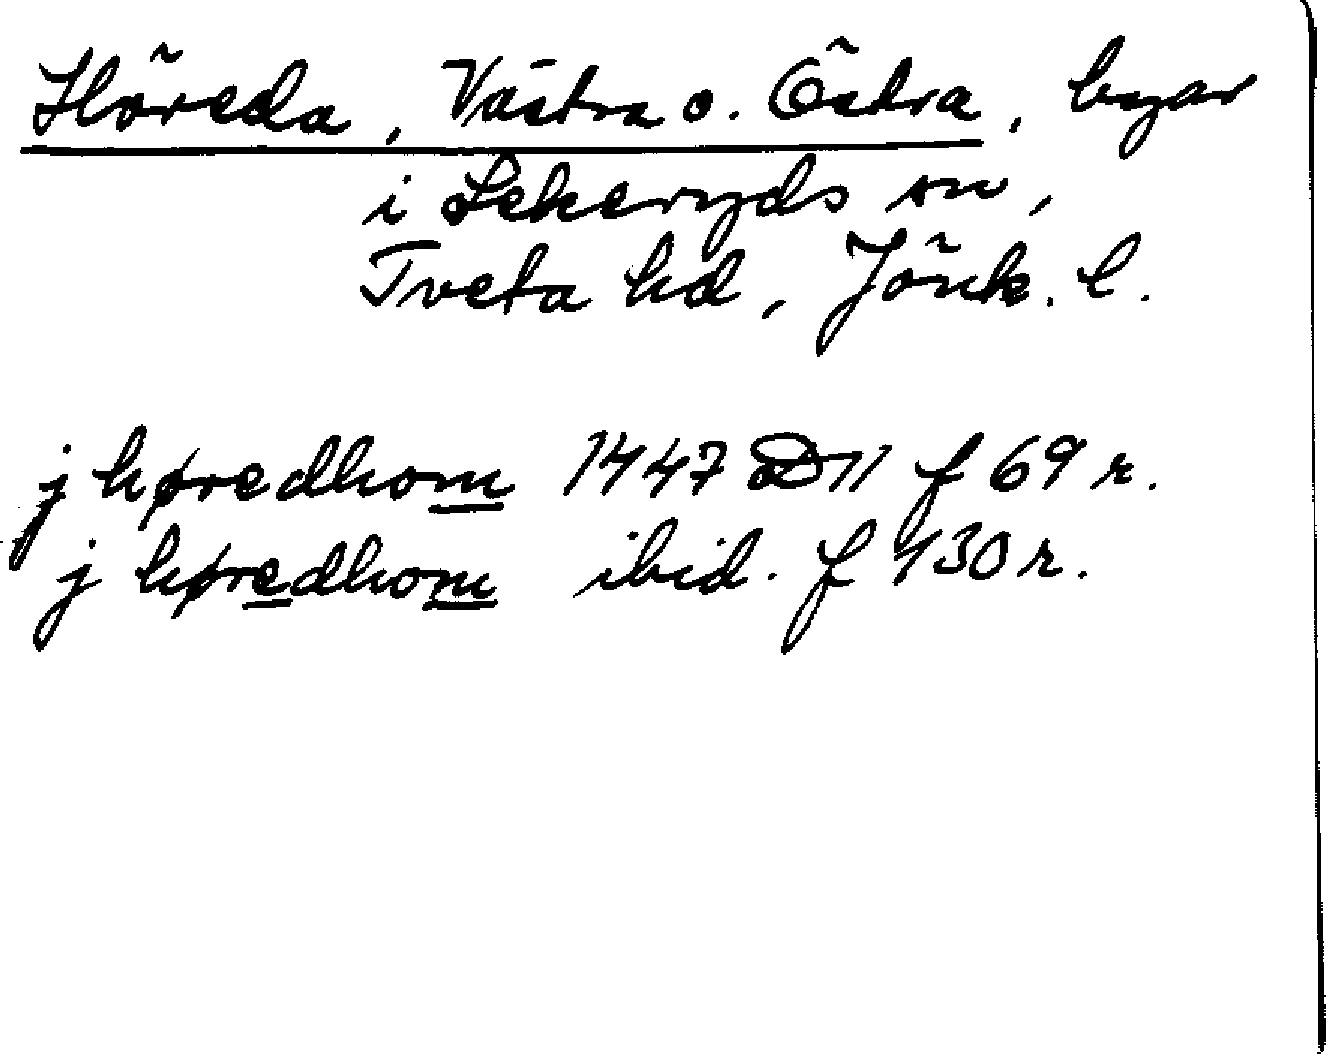 Höreda, Västra o. Östra, byar
i Lekeryds sn,
Tveta hd, Jönk. l.
j høredhom 1447 D11 f 69 r.
j høredhom ibid. f 130 r.